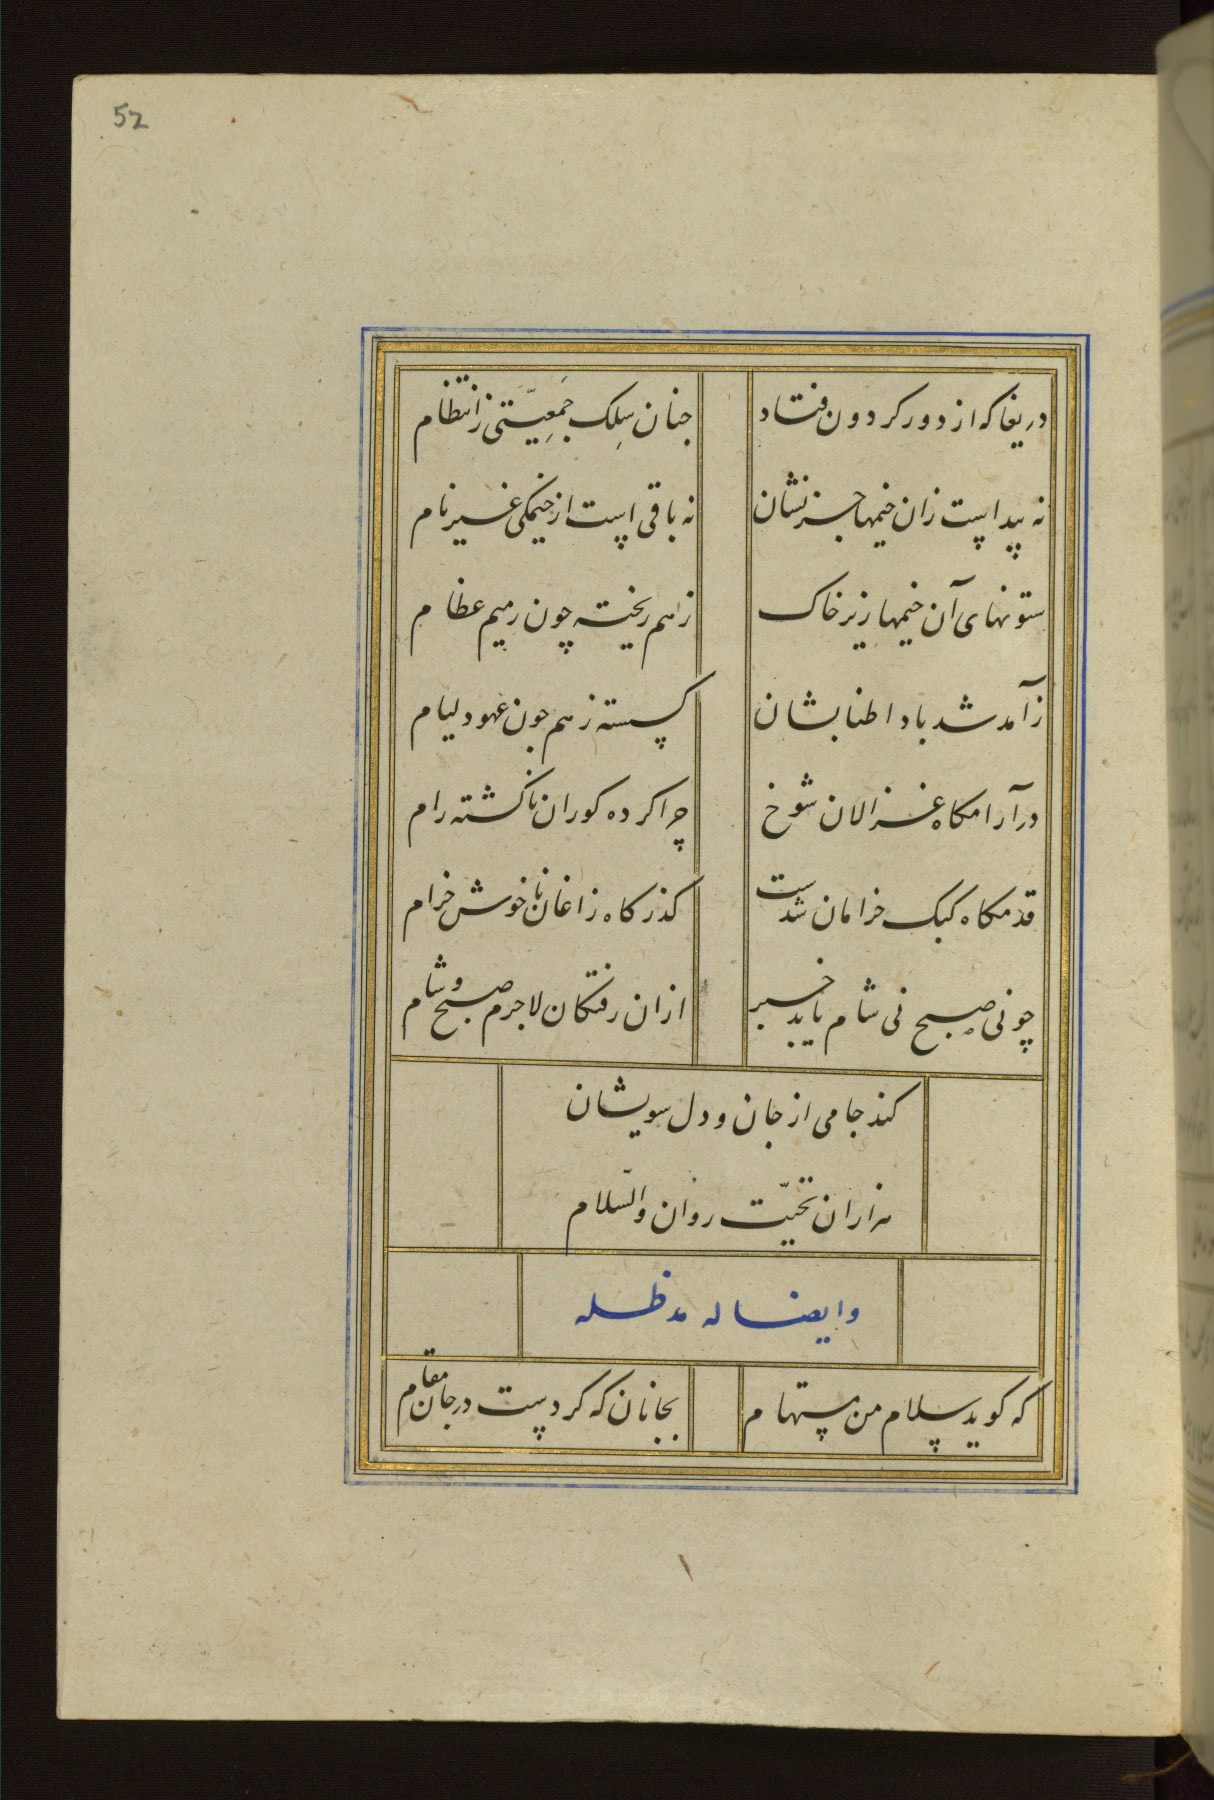 52
دریغا که از دور کردون فتاد جنان سِلک جَمعِیّتی ز انتظام
نه پیداست زان خیمها جز نشان نه باقی است از خیمکی غیر نام
ستونهای آن خیمها زیر خاک ز هم ریخته چون رمیم عظام
ز آمد شد باد اطنابشان کسسته ز هم جون عهود لیام
در آرامکاه غزالان شوخ چرا کرده کوران ناکشته رام
قدمکاه کبک خرامان شدست کذرکاه زاغان ناخوش خرام
چو نی صبح نی شام یابد خبر ازان رفتکان لاجرم صبح و شام
کند جامی از جان و دل سویشان
هزاران تحیّت روان والسّلام
وایضا له مد ظله
که کوید سلام من مستهام بجانان که کردست در جان مقام